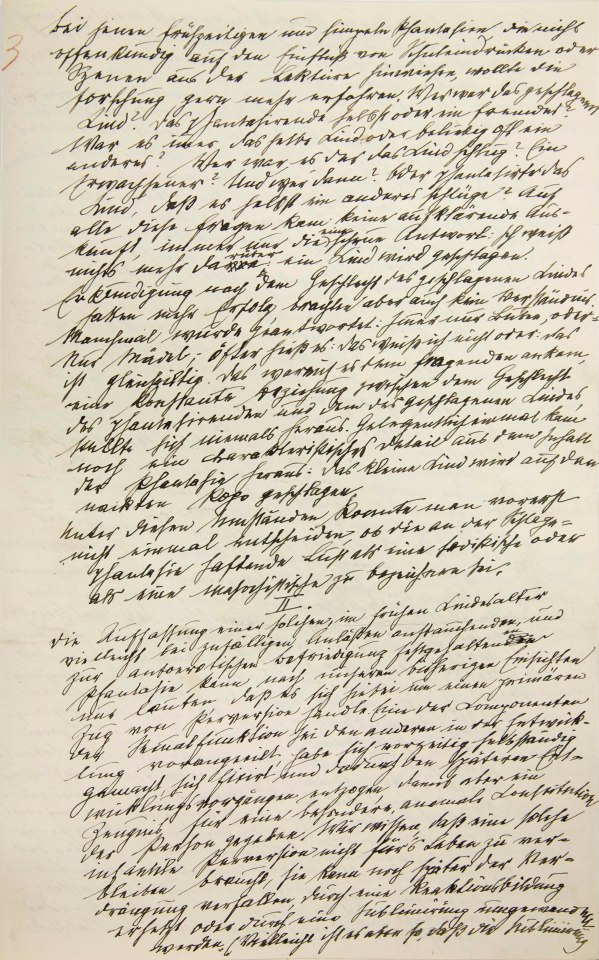 3
Bei jenen frühzeitigen und simpeln Phantasien, die nicht
offenkundig auf den Einfluß von Schuleindrücken oder
Szenen aus der Lektüre hinwiesen, wollte die
Forschung gern mehr erfahren. Wer war das geschlagene
Kind? Das phantasierende selbst oder ein fremdes?
War es immer dasselbe Kind oder beliebig oft ein
anderes? Wer war es der das Kind schlug? Ein
Erwachsener? Und wer dann? Oder phantasirte das
Kind, daß es selbst ein anderes schlüge? Auf
alle diese Fragen kam keine aufklärende Aus-
kunft, immer nur die eine scheue Antwort: Ich weiß
nichts mehr darüber ein Kind wird geschlagen.
Erkundigung nach dem Geschlecht des geschlagenen Kindes
hatten mehr Erfolg brachten aber auch kein Verständnis.
Manchmal wurde geantwortet: Immer nur Buben, oder:
Nur Mädel; öfter hieß es: das weiß ich nicht oder: das
ist gleichgiltig. Das worauf es dem Fragenden ankam,
eine konstante Beziehung zwischen dem Geschlecht
des phantasirenden und dem des geschlagenen Kindes,
stellte sich niemals heraus. Gelegentlich einmal kam
noch ein charakteristisches Detail aus dem Inhalt
der Phantasie heraus: Das kleine Kind wird auf den
nackten Popo geschlagen.
Unter diesen Umständen konnte man vorerst
nicht einmal entscheiden, ob die an der Schlage-
phantasie haftende Lust als eine sadistische oder
als eine masochistische zu bezeichnen sei.
II
Die Auffassung einer solchen, im frühen Kindesalter
vielleicht bei zufälligen Anläßen auftauchenden, und
zur autoerotischen Befriedigung festgehaltenen
Phantasie kann nach unseren bisherigen Einsichten
nur lauten, daß es sich hiebei um einen primären
Zug von Perversion handle. Eine der Componenten
der Sexualfunktion sei den anderen in der Entwick-
lung vorangeeilt, habe sich vorzeitig selbständig
gemacht, sich fixirt und dadurch den späteren Ent-
wicklungsvorgängen entzogen, damit aber ein
Zeugnis für eine besondere, anomale Constitution
der Person gegeben. Wir wissen, daß eine solche
infantile Perversion nicht fürs Leben zu ver-
bleiben braucht, sie kann noch später der Ver-
drängung verfallen, durch eine Reaktionsbildung
ersetzt oder durch eine Sublimirung umgewandelt
werden. (Vielleicht ist es aber so, daß die Sublimirung